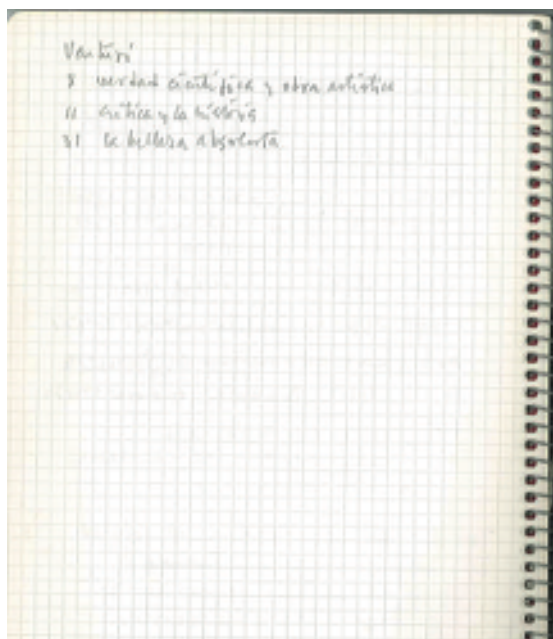 Venturi
8 verdad científica y obra artística
11 crítica y la historia
31 la belleza absoluta